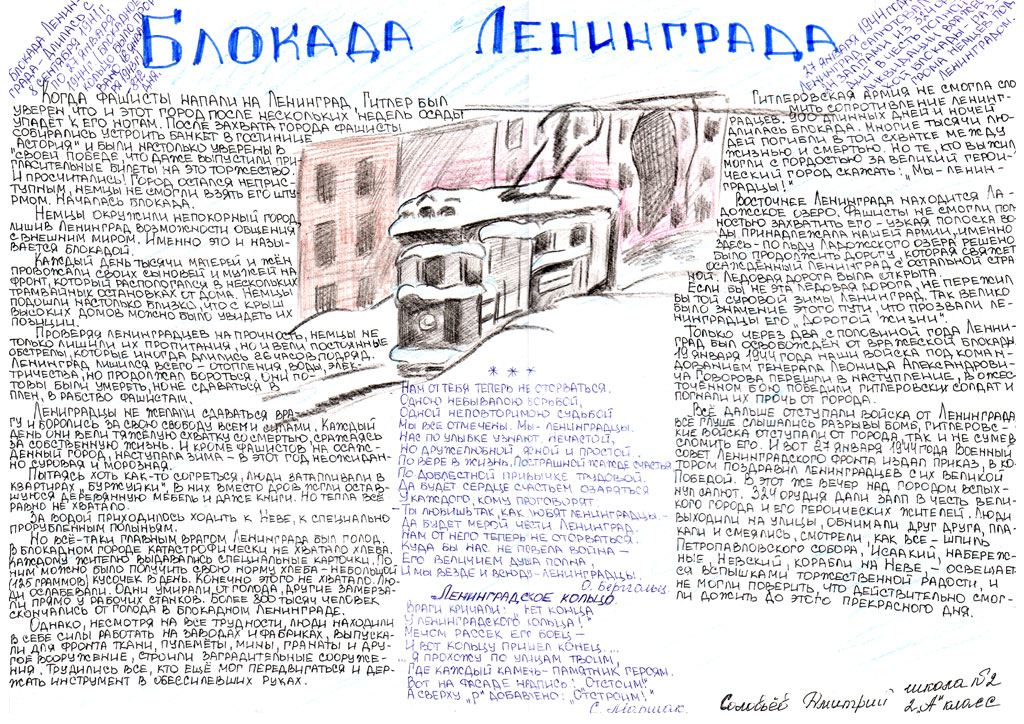 Блокада Ленинграда
Блокада Ленин-
града длилась с
8 сентября
по 27 января
дня.
27 января 1944 года
Когда фашисты напали на Ленинград, Гитлер был
уверен, что и этот город после нескольких недель осады
упадёт к его ногам. После захвата города фашисты
собирались устроить банкет в гостинице
"Астория" и были настолько уверены в
своей победе, что даже выпустили при-
гласительные билеты на это торжество.
И просчитались! Город остался неприс-
тупным, немцы не смогли взять его шту-
рмом. Началась блокада.
Немцы окружили непокорный город
лишив Ленинград возможности общения
с внешним миром. Именно это и назы-
вается блокадой.
Каждый день тысячи матерей и жён
провожали своих сыновей и мужей на
фронт, который распологался в нескольких
трамвайных остановках от дома. Немцы
подошли настолько близко, что с крыш
высоких домов можно было увидеть их
позиции.
Проверяя ленинградцев на прочность, немцы не
только лишили их пропитания, но и вели постоянные
обстрелы, которые иногда длились часов подряд.
Ленинград лишился всего - отопления, воды, элек-
тричества, но продолжал бороться. Они го-
товы были умереть, но не сдаваться в
плен, в рабство фашистам.
Ленинградцы не желали сдаваться вра-
гу и боролись за свою свободу всеми силами. Каждый
день они вели тяжёлую схватку со смертью, сражаясь
за собственную жизнь. И кроме фашистов на осаж-
денный город, наступала зима - в этот год неожидан-
но суровая и морозная.
Пытаясь хоть как-то согреться, люди затапливали в
квартирах "буржуйки". В них вместо дров жгли остав-
шуюся деревянную мебель и даже книги. Но тепла всё
равно не хватало.
За водой приходилось ходить к Неве, к специально
прорубленным полыньям.
Но всё-таки главным врагом Ленинграда был голод.
В блокадном городе катастрофически не хватало хлеба.
Каждому жителю выдавались специальные карточки. По
ним можно было получить свою норму хлеба - небольшой
(125 граммов) кусочек в день. Конечно этого не хватало. Лю-
ди ослабевали. Одни умирали от голода, другие замерза-
ли прямо у рабочих станков. Более 800 тысяч человек
скончались от голода в блокадном Ленинграде.
Однако, несмотря на все трудности, люди находили
в себе силы работать на заводах и фабриках, выпуска-
ли для фронта ткани, пулемёты, мины, гранаты и дру-
гое вооружение, строили заградительные сооруже-
ния. Трудились все, кто ещё мог передвигаться и дер-
жать инструмент в обессилевших руках.
* * *
Нам от тебя теперь не оторваться.
Одною небывалою борьбой,
Одной неповторимою судьбой
Мы все отмечены. Мы - ленинградцы.
Нас по улыбке узнают, нечастой,
Но дружелюбной ясной и простой.
По вере в жизнь. По страшной жажде счастья
По доблестной привычке трудовой.
Да будет сердце счастьем озаряться
У каждого, кому проговорят:
- Ты любишь так, как любят ленинградцы.-
Да будет мерой чести Ленинград.
Нам от него теперь не оторваться.
Куда бы нас не повела война -
Его величием душа полна,
И мы везде и всюду - ленинградцы.
О. Берггольц.
Ленинградское кольцо.
Враги кричали: "Нет конца
У ленинградского кольца!"
Мечом рассек его боец -
И вот кольцу пришел конец...
... Я прохожу по улицам твоим,
Где каждый камень - памятник героям.
Вот на фасаде надпись: "Отстоим"
А сверху "р" добавлено: "Отстроим!"
С. Маршак.
Гитлеровская армия не смогла сло-
мить сопротивление ленинг-
радцев. 900 длинных дней и ночей
длилась блокада. Многие тысячи лю-
дей погибли в той схватке между
жизнью и смертью. Но те, кто выжил
могли с гордостью за великий герои-
ческий город сказать: "Мы - ленин-
градцы!"
Восточнее Ленинграда находится Ла-
дожское озеро. Фашисты не смогли пол-
ностью захватить его - узкая полоска во-
ды принадлежала нашей армии, именно
здесь - по льду Ладожского озера решено
было продолжить дорогу, которая свяжет
осажденный Ленинград с остальной стра-
ной. Ледовая дорога была открыта.
Если бы не эта ледовая дорога, не пережил
бы той суровой зимы Ленинград. Так велико
было значение этого пути, что прозвали ле-
нинградцы его "Дорогой жизни".
Только через два с половиной года Ленин-
град был освобождён от вражеской блокады.
19 января 1944 года наши войска под коман-
дованием генерала Леонида Александрови-
ча Говорова перешли в наступление, в ожес-
точённом бою победили гитлеровских солдат и
погнали их прочь от города.
Всё дальше отступали войска от Ленинграда
всё глуше слышались разрывы бомб, гитлеровс-
кие войска отступали от города, так и не сумев
сломить его. И вот 27 января 1944 года Военный
совет Ленинградского фронта издал приказ, в ко-
тором поздравил ленинградцев с их великой
Победой. В этот же вечер над городом вспых-
нул салют. 324 орудия дали залп в честь вели-
кого города и его героических жителей. Люди
выходили на улицы, обнимали друг друга, пла-
кали и смеялись, смотрели, как все - шпиль
Петропавловского собора, Исаакий, набереж-
ные, Невский, корабли на Неве, - освещает-
ся вспышками торжественной радости, и
не могли поверить, что действительно смог-
ли дожить до этого прекрасного дня.
Соловьёв Дмитрий школа №2
2 "А" класс